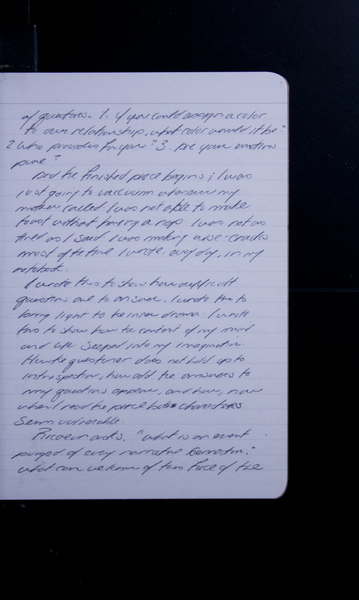 of questions. 1. if you could assign a color
to our relationship, what color would it be?
2 who provides for you? 3. Are your emotions
pure?
And the finished piece begins; I was
just going to vacuum whenever my
mother called. I was not able to make
toast without having a nap. I was not as
tired as I said. I was making wise-cracks
most of the time. I wrote. every day, in my
notebook.
I wrote this to show how difficult
questions are to answer. I wrote this to
bring light to the inner drama. I wrote
this to show how the content of my mind
and life seeped into my imagination.
the questioner does not hold up to
introspection, how odd the answers to
my questions appear, and how, now
when I read the piece both characters
seem vulnerable.
Ricoeur asks, "what is an event
purged of every narrative connection?"
what can we know of this force of the